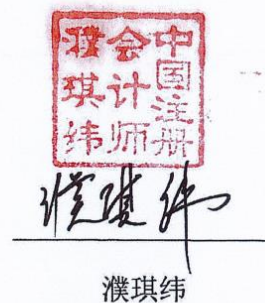 中国注册
会计师
濮琪纬
濮琪纬
濮琪纬